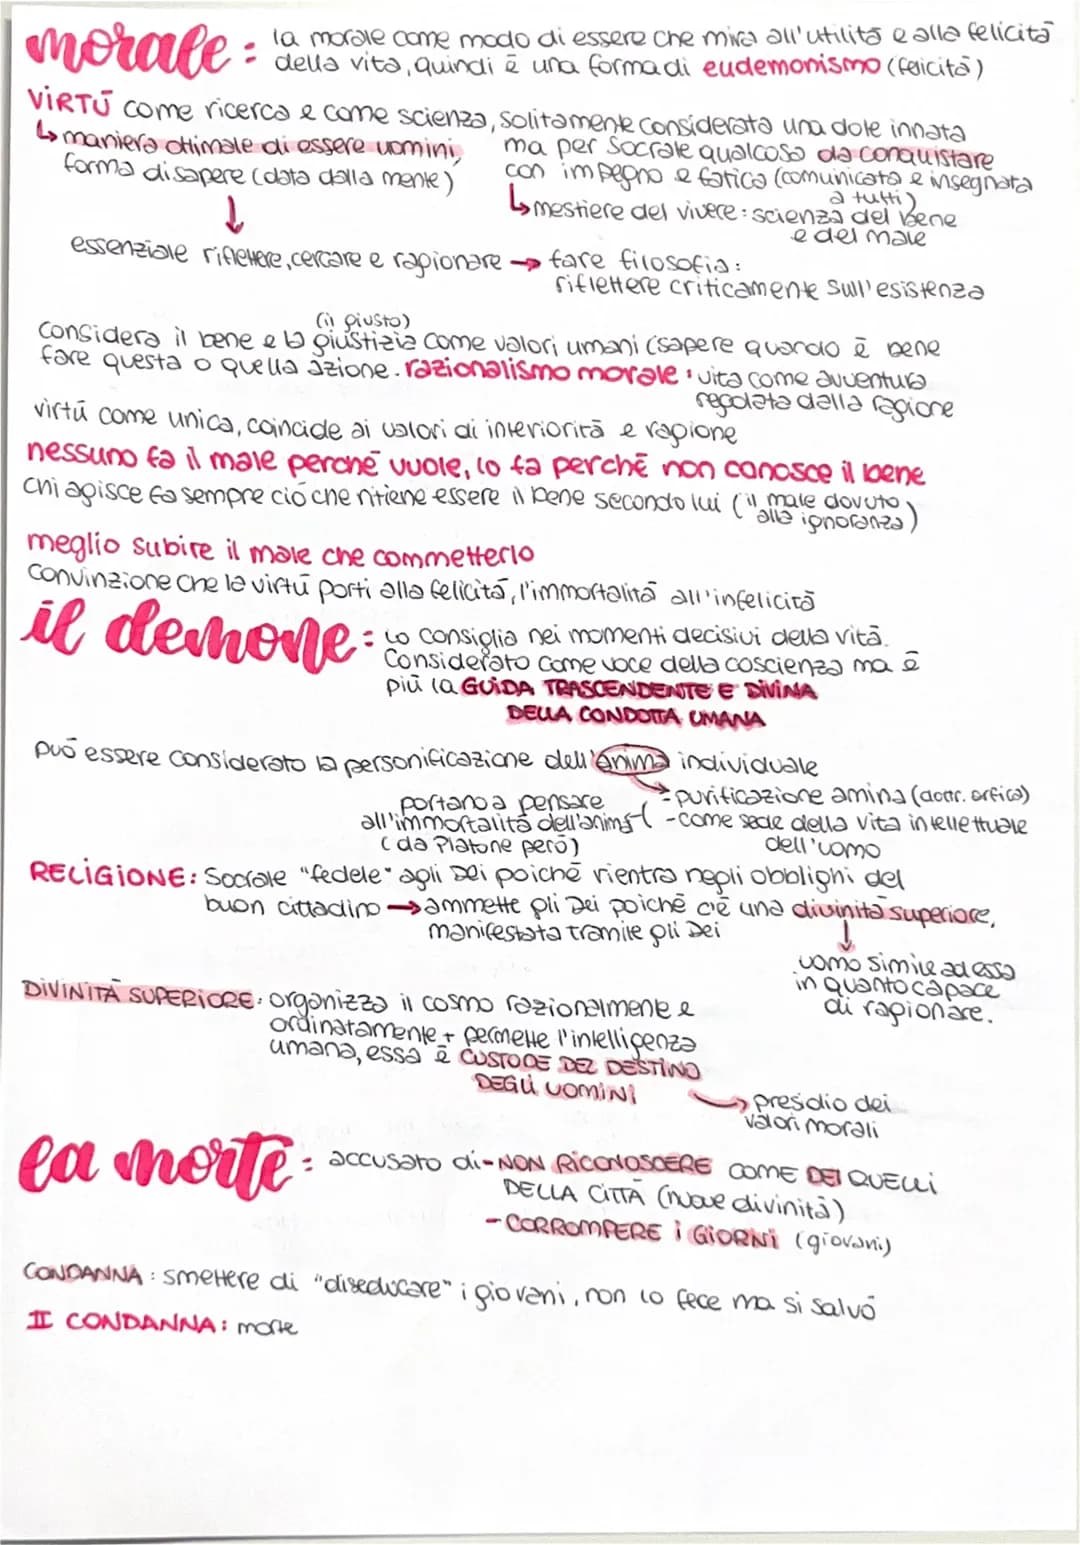 morale: la morale come modo di essere che mira all'utilità e alla felicità
della vita, quindi è una forma di eudemonismo (felicità)
VIRTÙ come ricerca e come scienza, solitamente considerata una dote innata
↳ maniera ottimale di essere uomini, ma per Socrate qualcosa da conquistare
forma di sapere (data dalla mente) con impegno e fatica (comunicata e insegnata
a tutti)
↳ mestiere del vivere: scienza del bene
e del male
essenziale riflettere, cercare e ragionare → fare filosofia:
riflettere criticamente sull'esistenza
(il giusto)
considera il bene e la giustizia come valori umani (sapere quando è bene
fare questa o quella azione. razionalismo morale: vita come avventura
regolata dalla ragione
virtù come unica, coincide ai valori di interiorità e ragione
nessuno fa il male perché vuole, lo fa perché non conosce il bene
chi agisce fa sempre ciò che ritiene essere il bene secondo lui (il male dovuto
alla ignoranza)
meglio subire il male che commetterlo
convinzione che la virtù porti alla felicità, l'immortalità all'infelicità
il demone: lo consiglia nei momenti decisivi della vita.
Considerato come voce della coscienza ma è
più la GUIDA TRASCENDENTE E DIVINA
DELLA CONDOTTA UMANA
può essere considerato la personificazione dell'anima individuale
- purificazione amina (dottr. orfica)
portano a pensare
all'immortalità dell'anima - come sede della vita intellettuale
(da Platone però) dell'uomo
RELIGIONE: Socrate "fedele" agli Dei poiché rientra negli obblighi del
buon cittadino → ammette gli Dei poiché c'è una divinità superiore,
manifestata tramite gli Dei
uomo simile ad essa
in quanto capace
di ragionare.
DIVINITÀ SUPERIORE: organizza il cosmo razionalmente e
ordinatamente + permette l'intelligenza
umana, essa è CUSTODE DEL DESTINO
DEGLI UOMINI
→ presidio dei
valori morali
la morte: accusato di - NON RICONOSCERE COME DEI QUELLI
DELLA CITTÀ (nuove divinità)
- CORROMPERE I GIORNI (giovani)
CONDANNA: smettere di "diseducare" i giovani, non lo fece ma si salvò
II CONDANNA: morte